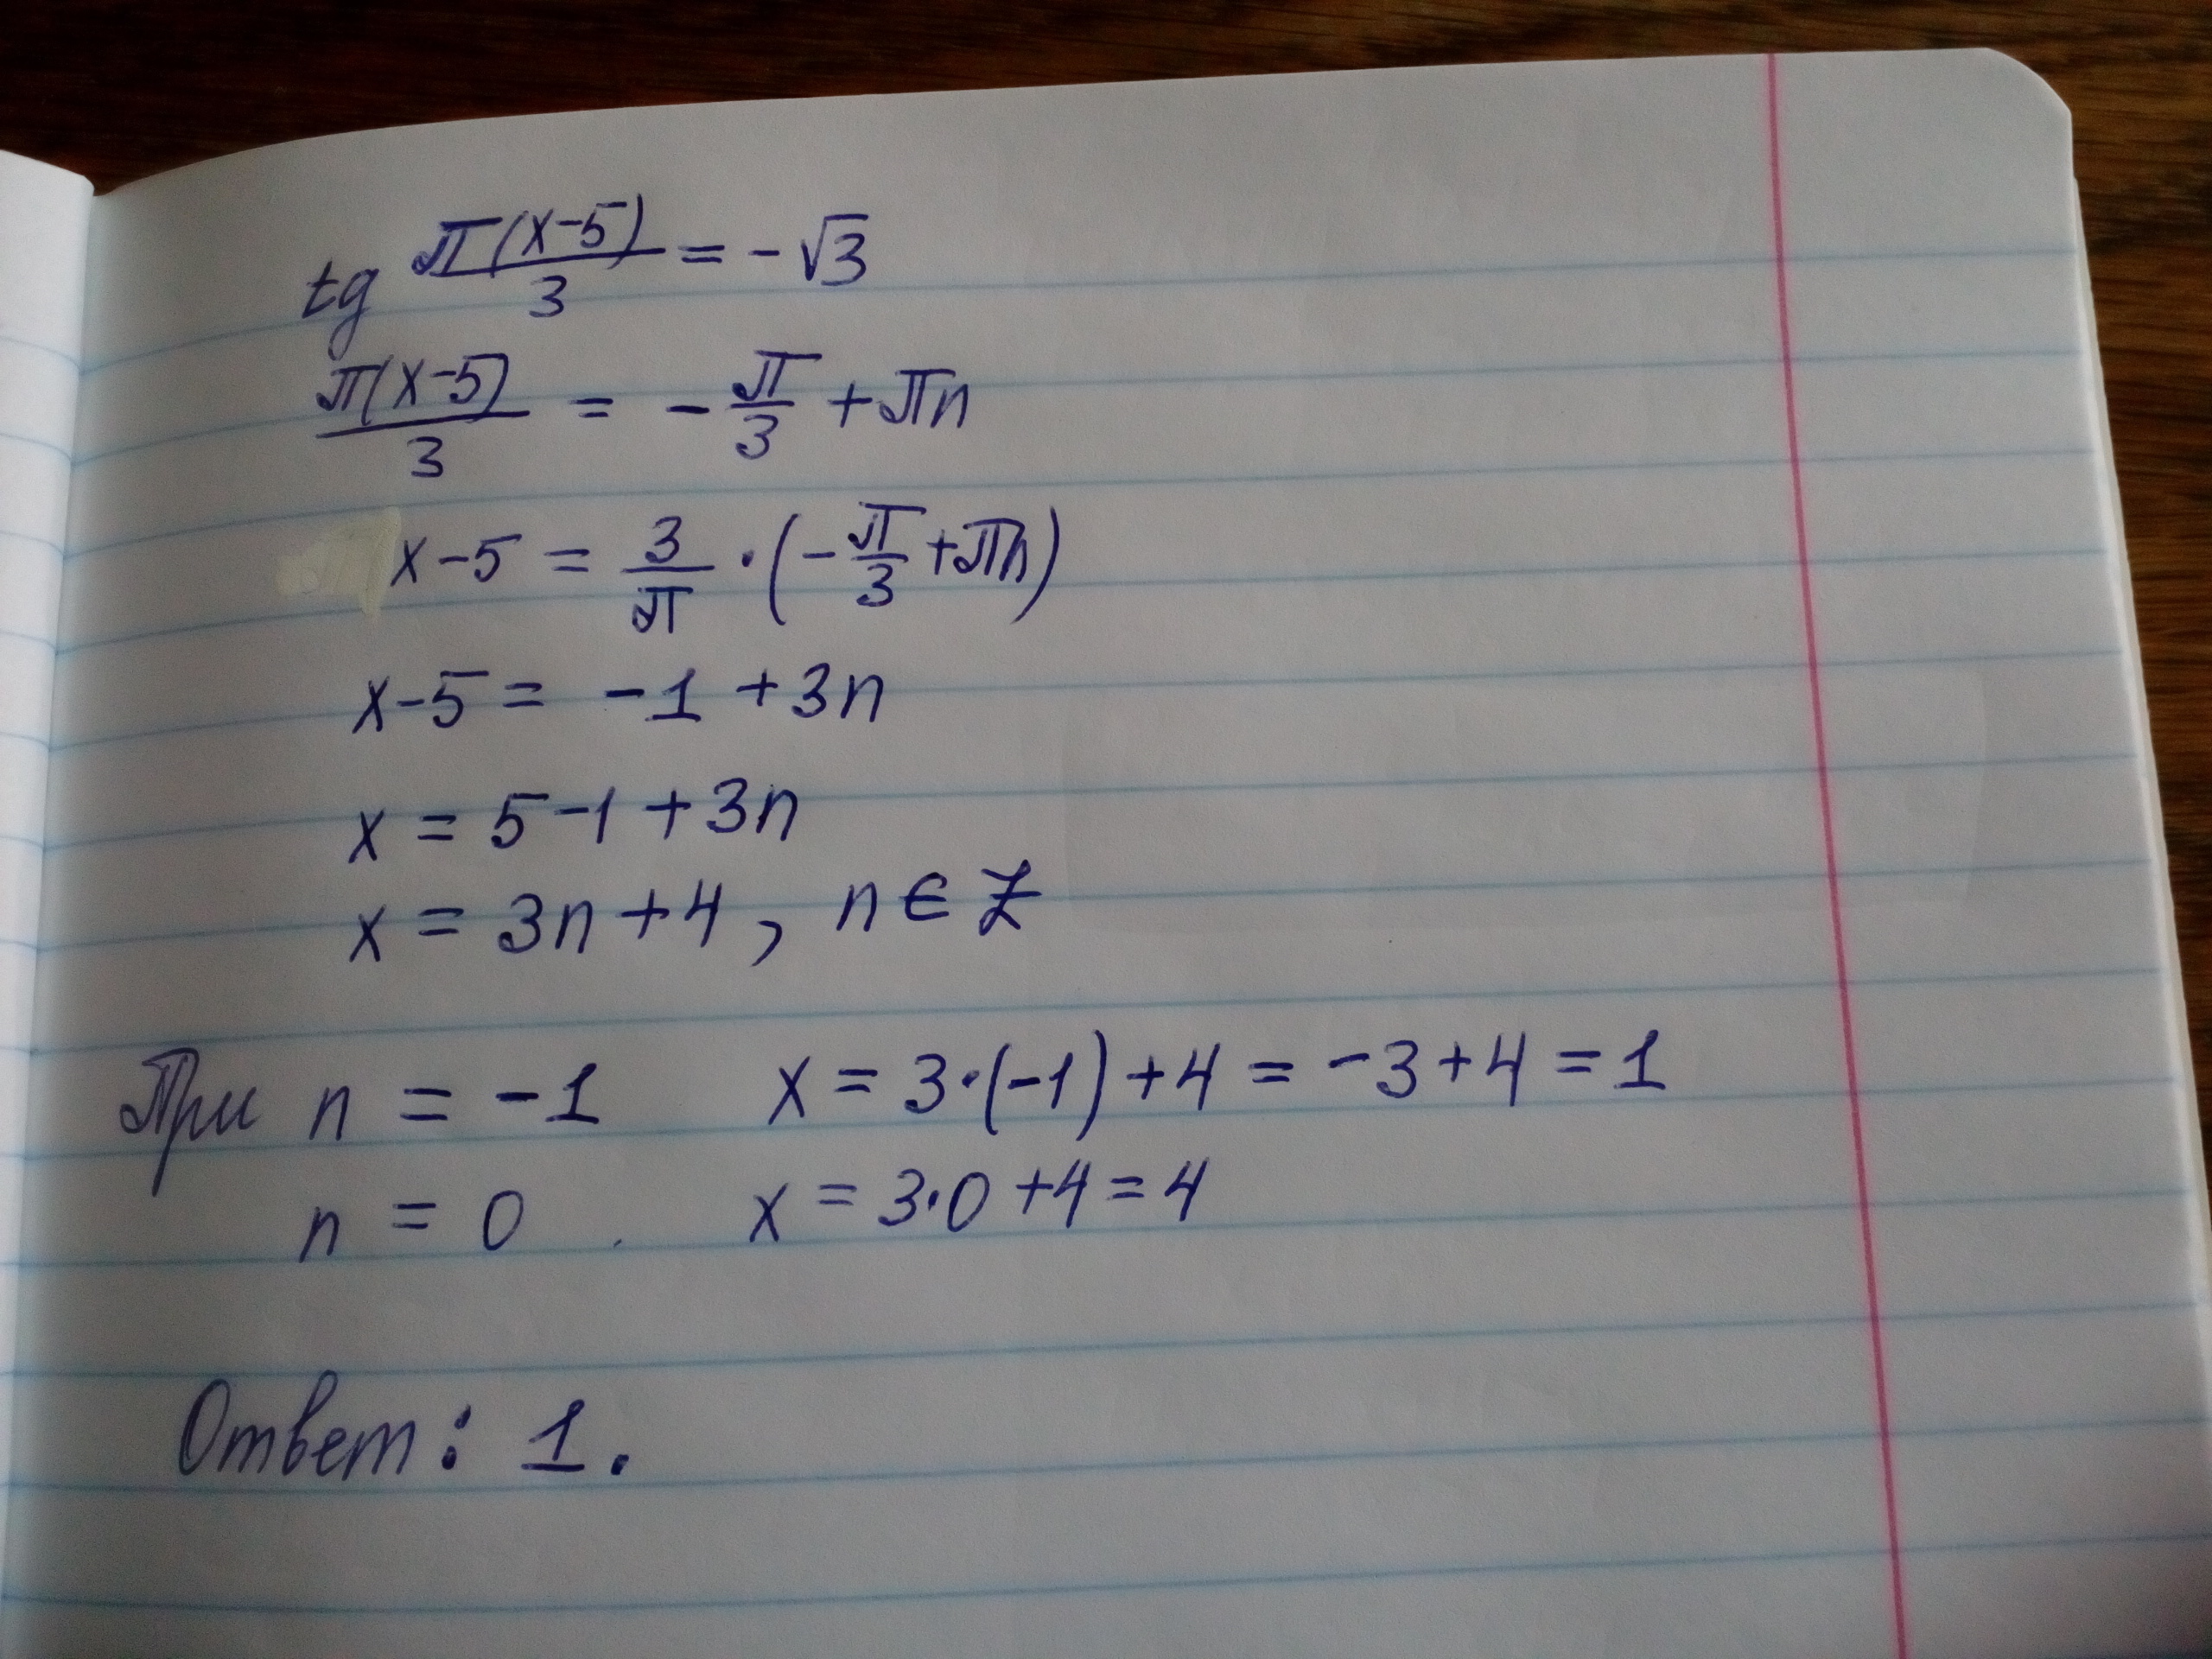 tg π(x-5)/3 = -√3
π(x-5)/3 = -π/3 + πn
x-5 = 3/π · (-π/3 + πn)
x-5 = -1 + 3n
x = 5-1 + 3n
x = 3n + 4, n ∈ Z
При n = -1 x = 3·(-1) + 4 = -3 + 4 = 1
n = 0 x = 3·0 + 4 = 4
Ответ: 1.